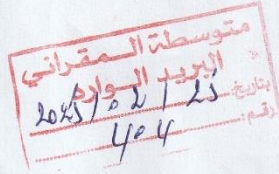 متوسطة المقراني
البريد الوارد
بتاريخ: 2025/02/25
رقم: 404